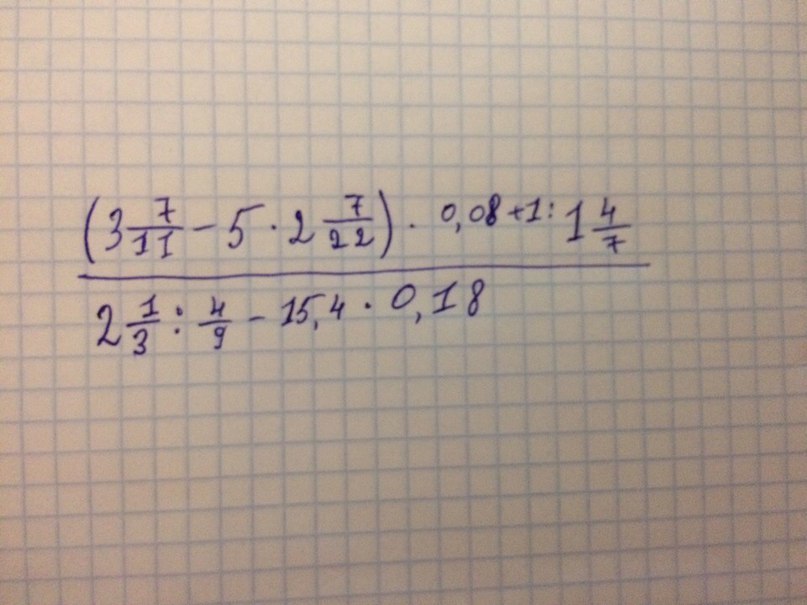 (3 7/11 - 5 · 2 7/22) · 0,08 + 1 : 1 4/7
2 1/3 : 4/9 - 15,4 · 0,18